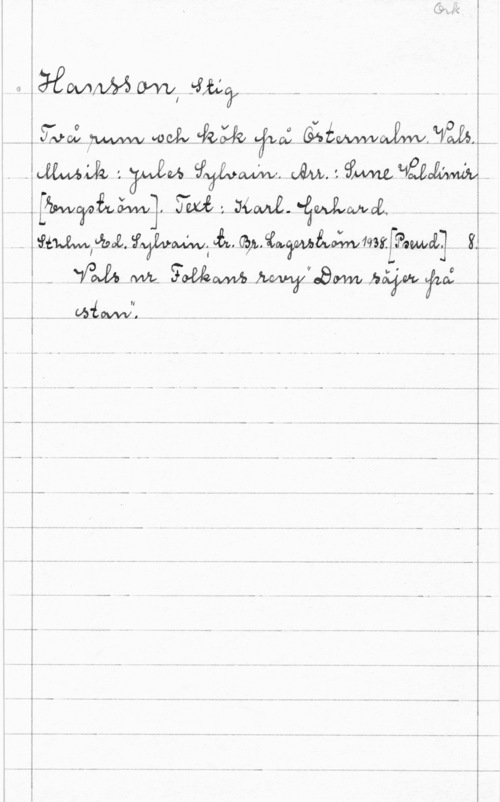 Ork
Hansson, Stig
Två rum och kök på Östermalm. Vals.
Musik: Jules Sylvain. Arr.: Sune Waldimir
[Engström]. Text: Karl-Gerhard.
Sthlm, Ed. Sylvain; tr. Br. Lagerström 1938. [Pseud.] 8.
Vals ur Folkans revy "Dom säjer på
stan".